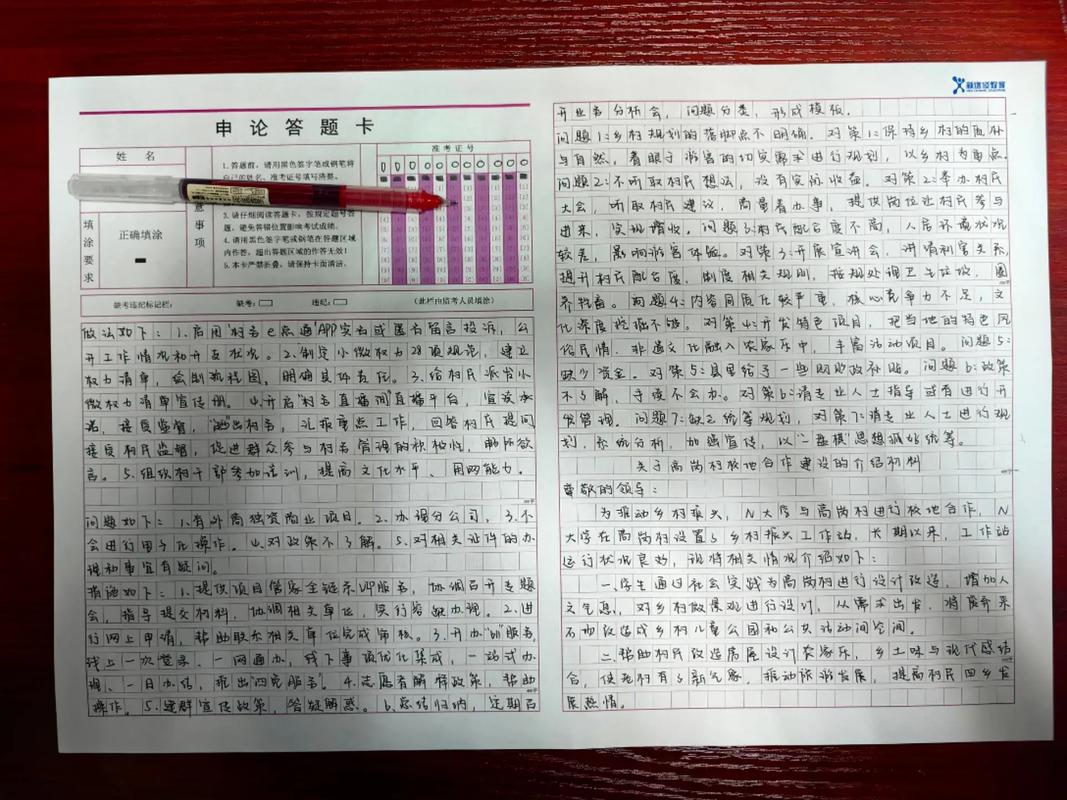 申论答题卡
姓名
准考证号
填涂要求
正确填涂
意事项
1. 答题前，请用黑色签字笔或钢笔将
自己的姓名、准考证号填写清楚。
3. 请仔细阅读答题卡，按规定题号答
题，避免答错位置影响考试成绩。
4. 请用黑色签字笔或钢笔在答题区域
内作答，超出答题区域的作答无效！
5. 本卡严禁折叠，请保持卡面清洁。
缺考违纪标记栏：
缺考：
违纪：
(此栏由监考人员填涂)
做法如下：1.启用"村务e点通"APP实名或匿名留言投诉，公
开工作情况和开支状况。2.制定小微权力28项规范，建立
权力清单，绘制流程图，明确具体责任。3.给村民派发小
微权力清单宣传册。4.开启"村务直播间"直播平台，宣读承
诺，提质监督，"晒出村务"，汇报重点工作，回答村民提问
接受村民监督，促进群众参与村务管理的积极性，畅所欲
言。5.组织村干部参加培训，提高文化水平、用网能力。
问题如下：1.有外商独资商业项目。2.办理分公司，3.不
会进行电子化操作。4.对政策不了解。5.对相关证件的办
理和事宜有疑问。
措施如下：1.提供项目管家全链条VIP服务，协调召开专题
会，指导提交材料，协调相关单位，实行容缺办理。2.进
行网上申请，帮助联系相关单位完成审核。3.开办服务，
线上一次登录、一网通办，线下事项优化集成，一站式办
理、一日办结，推出"四免服务"。4.志愿者解释政策，帮助
操作。5.建群宣传政策，答疑解惑。6.总结归纳，定期召
新途径教育
开业务分析会，问题分类，形成模板。
问题1：乡村规划的落脚点不明确。对策1：保持乡村的质朴
与自然，着眼于游客的切实需求进行规划，以乡村为重点。
问题2：不听取村民想法，没有实际收益。对策2：举办村民
大会，听取村民建议，商量着办事，提供岗位让村民参与
进来，实现增收。问题3：村民配合度不高，人居环境状况
较差，影响游客体验。对策3：开展宣讲会，讲清利害关系，
提升村民配合度，制度相关规则，按规处理卫生垃圾，圈
养牲畜。问题4：内容同质化较严重，核心竞争力不足，文
化深度挖掘不够。对策4：开发特色项目，把当地的特色风
俗民情、非遗文化融入农家乐中，丰富活动项目。问题5：
缺少资金。对策5：县里给予一些财政补贴。问题6：政策
不了解，手续不会办。对策6：请专业人士指导或者进行开
发管理。问题7：缺乏统筹规划，对策7：请专业人士进行规
划，系统分析，加强宣传，以"一盘棋"思想抓好统筹。
关于高岗村校地合作建设的介绍材料
尊敬的领导：
为推动乡村振兴，N大学与高岗村进行校地合作，N
大学在高岗村设置了乡村振兴工作站，长期以来，工作站
运行状况良好，现将相关情况介绍如下：
一、学生通过社会实践为高岗村进行设计改造，增加人
文气息，对乡村微景观进行设计，从需求出发，将废弃采
石场改造成乡村儿童公园和公共活动间空间。
二、帮助村民改造房屋设计农家乐，乡土味与现代感结
合，使老村有了新气象，推动旅游发展，提高村民回乡发
展热情。